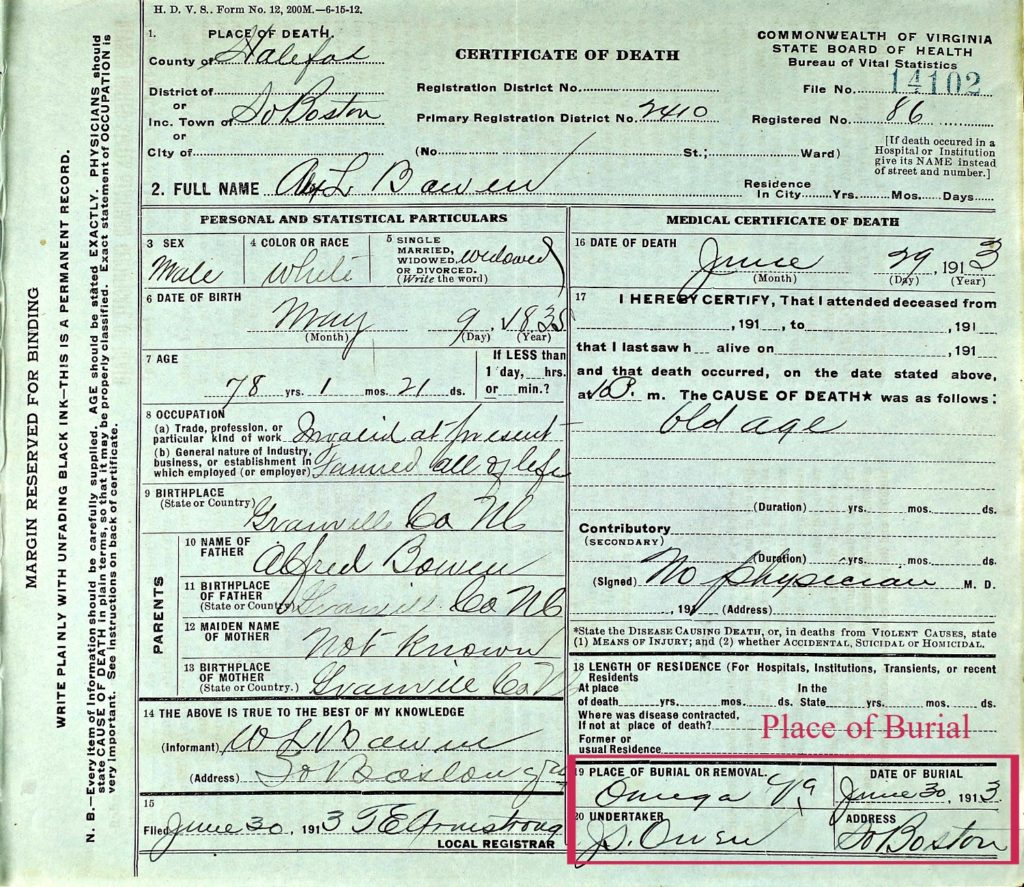 H. D. V. S.. Form No. 12, 200M.—6-15-12.
1. PLACE OF DEATH.
County of Halifax
District of
or
Inc. Town of So Boston
or
City of
CERTIFICATE OF DEATH
Registration District No.
Primary Registration District No. 2410
(No. St.; Ward)
COMMONWEALTH OF VIRGINIA
STATE BOARD OF HEALTH
Bureau of Vital Statistics
File No. 14102
Registered No. 86
[If death occured in a
Hospital or Institution
give its NAME instead
of street and number.]
2. FULL NAME L Bowen
Residence
In City Yrs. Mos. Days
PERSONAL AND STATISTICAL PARTICULARS
3 SEX
Male
4 COLOR OR RACE
White
5 SINGLE
MARRIED,
WIDOWED,
OR DIVORCED.
(Write the word)
widowed
6 DATE OF BIRTH
May 9, 1835
(Month) (Day) (Year)
7 AGE
78 yrs. 1 mos. 21 ds.
If LESS than
1 day, hrs.
or min.?
8 OCCUPATION
(a) Trade, profession, or
particular kind of work Invalid at present
(b) General nature of Industry,
business, or establishment in
which employed (or employer) Farmed all of life
9 BIRTHPLACE
(State or Country)
Granville Co NC
PARENTS
10 NAME OF
FATHER
Alfred Bowen
11 BIRTHPLACE
OF FATHER
(State or Country) Granville Co NC
12 MAIDEN NAME
OF MOTHER
Not Known
13 BIRTHPLACE
OF MOTHER
(State or Country.) Granville Co N
14 THE ABOVE IS TRUE TO THE BEST OF MY KNOWLEDGE
(Informant) W L Bowen
(Address) So Boston
15
Filed June 30, 1913 T E Armstrong
LOCAL REGISTRAR
MEDICAL CERTIFICATE OF DEATH
16 DATE OF DEATH
June 29, 1913
(Month) (Day) (Year)
17 I HEREBY CERTIFY, That I attended deceased from
, 191 , to , 191
that I last saw h alive on , 191
and that death occurred, on the date stated above,
at P. m. The CAUSE OF DEATH★ was as follows:
Old age
(Duration) yrs. mos. ds.
Contributory
(SECONDARY)
(Duration) yrs. mos. ds.
(Signed) No physician M. D.
, 191 (Address)
*State the DISEASE CAUSING DEATH, or, in deaths from VIOLENT CAUSES, state
(1) MEANS OF INJURY; and (2) whether ACCIDENTAL, SUICIDAL or HOMICIDAL.
18 LENGTH OF RESIDENCE (For Hospitals, Institutions, Transients, or recent
Residents
At place In the
of death yrs. mos. ds. State yrs. mos. ds.
Where was disease contracted,
If not at place of death?
Former or
usual Residence
Place of Burial
19 PLACE OF BURIAL OR REMOVAL.
Omega Va
DATE OF BURIAL
June 30, 1913
20 UNDERTAKER
Owen
ADDRESS
So Boston
MARGIN RESERVED FOR BINDING
WRITE PLAINLY WITH UNFADING BLACK INK—THIS IS A PERMANENT RECORD.
N. B.—Every item of Information should be carefully supplied. AGE should be stated EXACTLY. PHYSICIANS should
state CAUSE OF DEATH in plain terms, so that it may be properly classified. Exact statement of OCCUPATION is
very important. See instructions on back of certificate.